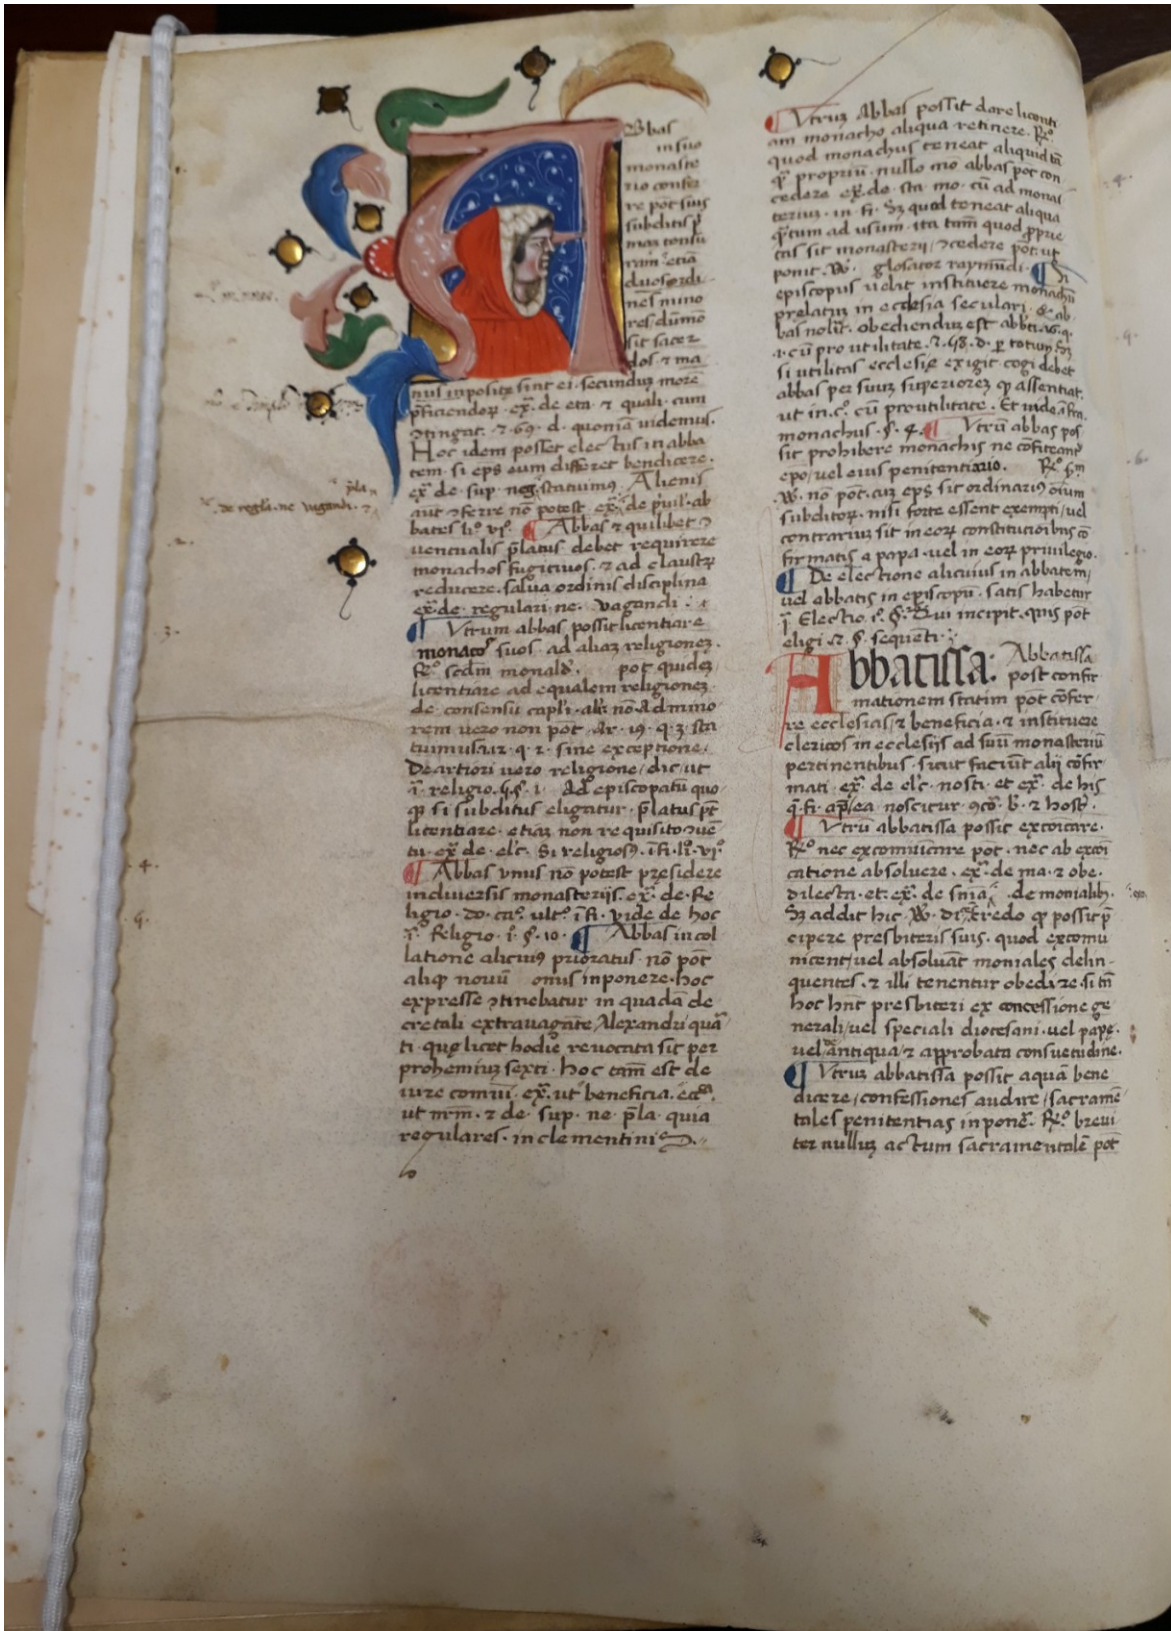 Abbas
in suo
monaste
rio confer
re pōt suis
subditis p̄
mam tonsū
ram etiā
duos ordi
nēs mino
res dūmō
sit sacer
dos ⁊ ma
nus inposite sint ei secundum morē
p̄ficiendoꝝ. ex̄. de eta. ⁊ quali. cum
ɔtingat. ⁊ 69. d. quoniā uidemus.
Hoc idem posset electus in abba
tem. si ep̄s eum differet bendicere.
ex̄. de sup. neg. statuimꝰ. Alienis
aut ɔferre nō potest ex̄. de p̄uil. ab
bates li.º vi.º ¶ Abbas ⁊ quilibet ɔ
uencualis p̄latus debet requirere
monachos fugitiuos. ⁊ ad claustꝝ
reducere. salua ordinis disciplina
ex̄. de. regulari. ne. vagandi. ⁊
¶ Vtrum abbas possit licentiare
monacoˢ suos. ad aliaȝ religioneȝ.
R.º secdm monald. pot quideȝ
licentiare ad equalem religioneȝ
de consensu capl'i. alr̄. nō. Ad mino
rem uero non pōt. Ar. 19. q. 3. sta
tuimus. 12. q. 2. sine exceptione.
De artiori uero religione / dic / ut
ī. religio. §. i. Ad episcopatū quo
qȝ si subditus eligatur. p̄latus pt̄
licentiare. etiaȝ non requisito ɔuē
tu. ex̄. de. elc̄. Si religiosꝰ. ī fi. li.º vi.º
¶ Abbas vnus nō potest presidere
in diuersis monasterijs. ex̄. de. Re
ligio. do. ca.º ult.º ī fi. vide de hoc
ī. Religio. i.º §. 10. ¶ Abbas in col
latione alicuiꝰ prioratus nō pōt
aliqȝ nouū onus inponere. hoc
expresse ɔtinebatur in quadā de
cretali extrauagāte Alexandri quā
ti. que licet hodie reuocata sit per
prohemiuȝ sexti. hoc tam̄ est de
iure comūi. ex̄. ut beneficia. ecc̄a.
ut nr̄m. ⁊ de. sup. ne. p̄la. quia
regulares. in clementinis
¶ Vtruȝ Abbas possit dare licenti
am monacho aliqua retinere. R.º
quod monachus teneat aliquid tā
qȝ propriū. nullo mō abbas pōt con
cedere ex̄. de. sta. mo. cū ad monas
teriuȝ. in. fi. Sȝ quod teneat aliqua
q̄tum ad usum. ita tam̄ quod p̱prie
tas sit monasterij / ɔcedere pōt. ut
ponit. W. glosator raymūdi. ¶ Si
episcopus uelit instituere monachū
prelatuȝ in ecclesia seculari. ⁊ ab
bas nolit. obedienduȝ est abbti.
. cū pro utilitate. ⁊. 58. d. p̱ totum Sȝ
si utilitas ecclesie exigit cogi debet
abbas per suuȝ superioreȝ qȝ assentiat.
ut in. c.º cū pro utilitate. Et uide. ī fra.
monachus. §. 4. ¶ Vtrū abbas pos
sit prohibere monachis ne cōfiteant̄
epo / uel eius penitentiario. R.º sm̄
W. nō pōt. cuȝ ep̄s sit ordinariꝰ oīum
subditoꝝ. nisi forte essent exempti / uel
contrariuȝ sit in eoꝝ constitucioībus cō
firmatis a papa. uel in eoꝝ priuilegio.
¶ De electione alicuius in abbatem /
uel abbatis in episcopū. satis habetur
ī. Electio. i.º §. Qui incipit. quis pōt
eligi. ⁊. §. sequēti.
Abbatissa: Abbatissa
post confir
mationem statim pōt cōfer
re ecclesias / ⁊ beneficia. ⁊ instituere
clericos in ecclesijs ad suū monasteriū
pertinentibus. sicut faciūt alij cōfir
mati. ex̄. de elc̄. nosti. et ex̄. de his
q̄. fi. ap̄. ea noscitur. ɔcō. b̄. ⁊ host.
¶ Vtrū abbatissa possit excōicare.
R.º nec excomūicare pōt. nec ab excōi
catione absoluere. ex̄. de ma. ⁊ obe.
dilecta. et. ex̄. de snīa. de monialibȝ.
Sȝ addit hic W. di. credo qȝ possit p̄
cipere presbiteris suis. quod excomu
nicent / uel absoluāt moniales delin
quentes. ⁊ illi tenentur obedire. si tn̄
hoc hn̄t presbiteri ex concessione ge
nerali / uel speciali diocesani. uel pape.
uel antiqua / ⁊ approbata consuetudine.
¶ Vtruȝ abbatissa possit aquā bene
dicere / confessiones audire / sacramē
tales penitentias inponē. R.º breui
ter nulluȝ actum sacramentalē pōt